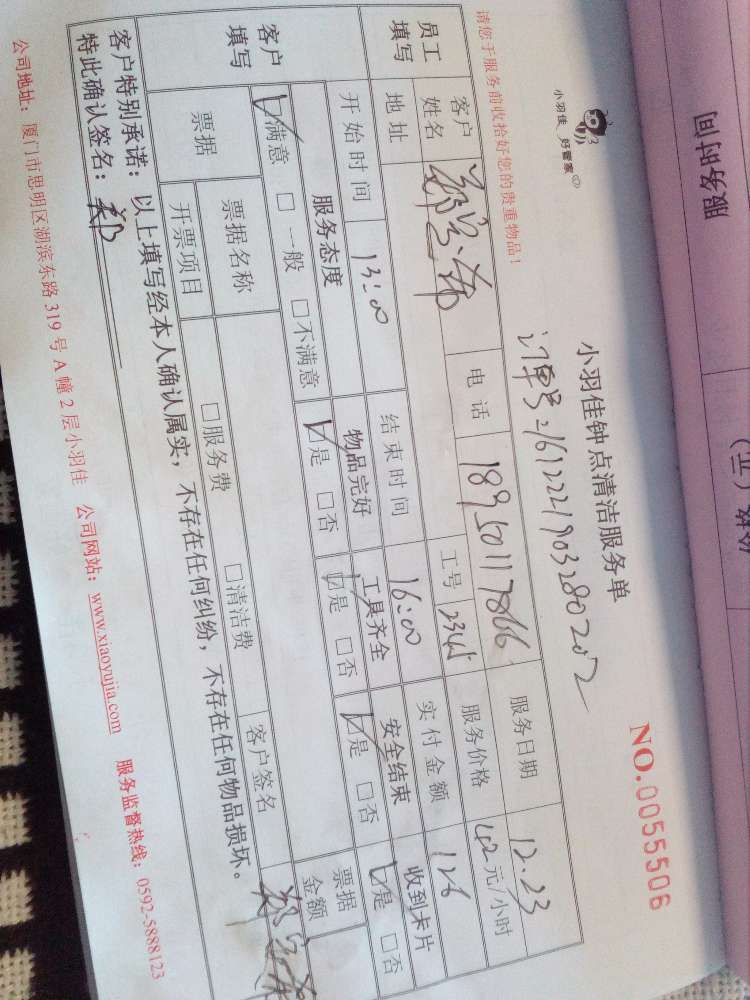 服务时间
小羽佳 好管家
小羽佳钟点清洁服务单
NO.0055506
订单号:21612221903280202
请您于服务前收拾好您的贵重物品!
员工填写
客户姓名
电话 18950117866
服务日期 12.23
地址
工号 2345
服务价格 42元/小时
开始时间 13:00
结束时间 16:00
实付金额 126
客户填写
服务态度 物品完好 工具齐全 安全结束 收到卡片
☑满意 □一般 □不满意 ☑是 □否 ☑是 □否 ☑是 □否 ☑是 □否
票据
票据名称
票据金额
开票项目 □服务费 □清洁费 客户签名
客户特别承诺:以上填写经本人确认属实,不存在任何纠纷,不存在任何物品损坏。
特此确认签名:郑
公司地址:厦门市思明区湖滨东路319号A幢2层小羽佳 公司网站:www.xiaoyujia.com 服务监督热线:0592-5888123